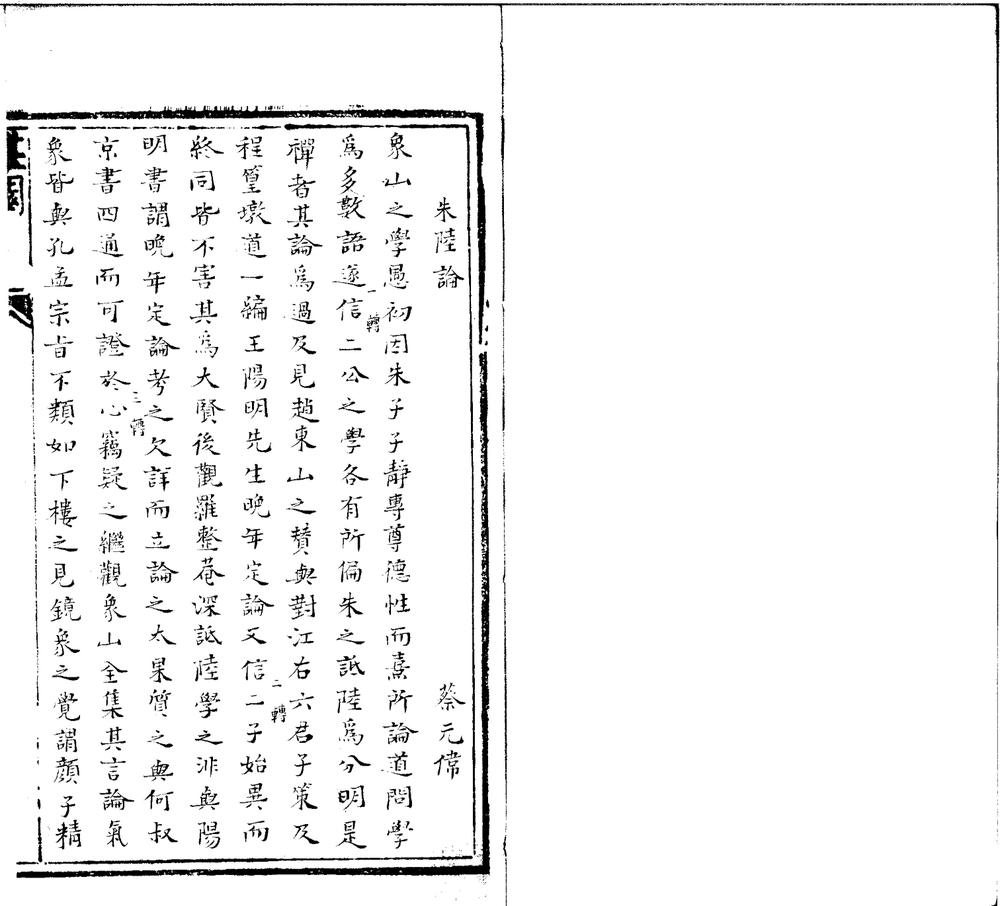 朱陸論 蔡元偉
象山之學愚初因朱子子靜專尊德性而熹所論道問學
爲多數語遂信二公之學各有所偏朱之詆陸爲分明是
一轉
禪者其論爲過及見趙東山之贊與對江右六君子策及
程篁墩道一編王陽明先生晚年定論又信二子始異而
二轉
終同皆不害其爲大賢後觀羅整菴深詆陸學之非與陽
明書謂晚年定論考之欠詳而立論之太果質之與何叔
三轉
京書四通而可證於心竊疑之繼觀象山全集其言論氣
象皆與孔孟宗旨不類如下樓之見鏡象之覺謂顔子精